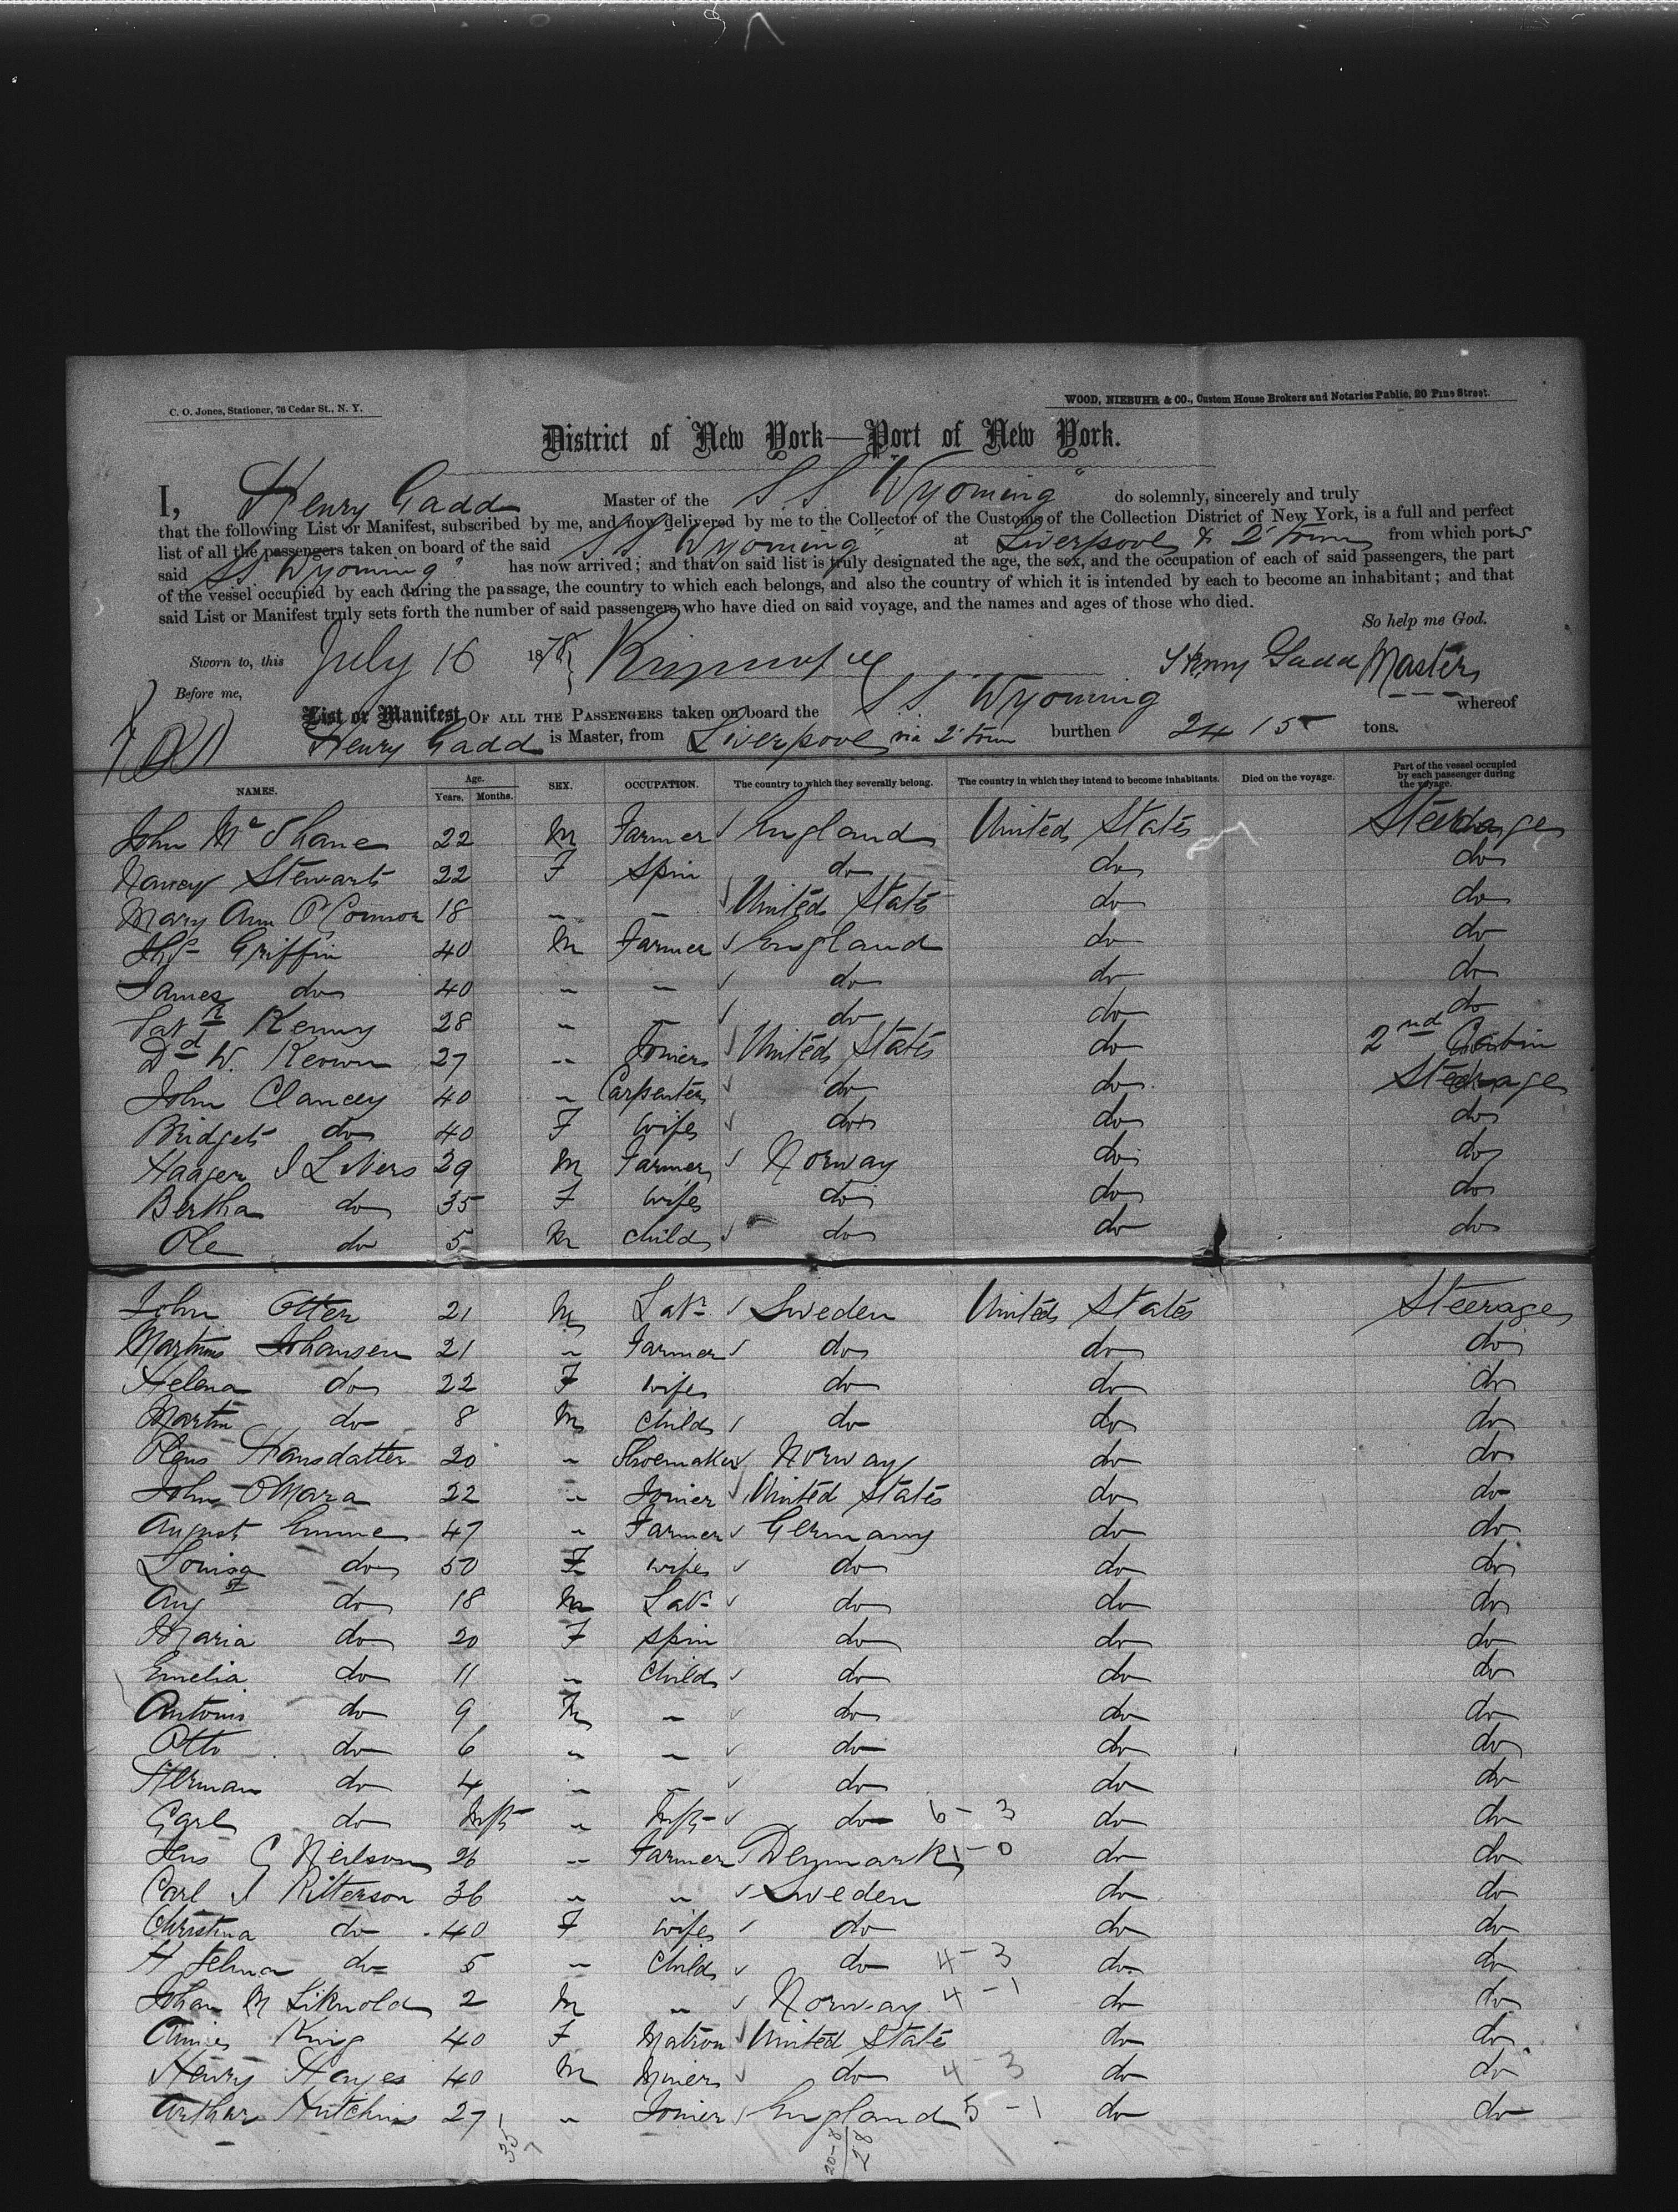 C. O. Jones, Stationer, 76 Cedar St., N. Y.
WOOD, NIEBUHR & CO., Custom House Brokers and Notaries Public, 20 Pine Street.
District of New York—Port of New York.
I, Henry Gadd Master of the S S "Wyoming" do solemnly, sincerely and truly
that the following List or Manifest, subscribed by me, and now delivered by me to the Collector of the Customs of the Collection District of New York, is a full and perfect
list of all the passengers taken on board of the said S S "Wyoming" at Liverpool & Q'Town from which ports
said S S "Wyoming" has now arrived; and that on said list is truly designated the age, the sex, and the occupation of each of said passengers, the part
of the vessel occupied by each during the passage, the country to which each belongs, and also the country of which it is intended by each to become an inhabitant; and that
said List or Manifest truly sets forth the number of said passengers who have died on said voyage, and the names and ages of those who died.
So help me God.
Sworn to, this July 16 1878 Henry Gadd Master
Before me,
List or Manifest OF ALL THE PASSENGERS taken on board the S S Wyoming whereof
Henry Gadd is Master, from Liverpool via Q'Town burthen 2415 tons.
NAMES. Age. Years. Months. SEX. OCCUPATION. The country to which they severally belong. The country in which they intend to become inhabitants. Died on the voyage. Part of the vessel occupied by each passenger during the voyage.
John McShane 22 M Farmer England United States Steerage
Nancy Stewart 22 F Spin do do do
Mary Ann O'Connor 18 " " United States do do
Thos Griffin 40 M Farmer England do do
James do 40 " " do do do
Patk Kenny 28 " " do do do
Dd W. Keown 27 " Joiner United States do 2nd Cabin
John Clancey 40 " Carpenter do do Steerage
Bridget do 40 F Wife do do do
Haagen 29 M Farmer Norway do do
Bertha do 35 F Wife do do do
Ole do 5 M Child do do do
John Otter 21 M Labr Sweden United States Steerage
Martinus Johansen 21 " Farmer do do do
Helena do 22 F Wife do do do
Martin do 8 M Child do do do
Hansdatter 20 " Shoemaker Norway do do
John O'Mara 22 " Joiner United States do do
August Emme 47 " Farmer Germany do do
Louisa do 50 F Wife do do do
Augst do 18 M Labr do do do
Maria do 20 F Spin do do do
Emelia do 11 " Child do do do
Antonis do 9 M " do do do
Otto do 6 " " do do do
Herman do 4 " " do do do
Carl do Inft " Inft do 6 - 3 do do
Jens C Neilson 26 " Farmer Denmark 1 - 0 do do
Carl J Ritterson 36 " " Sweden do do
Christina do 40 F Wife do do do
Hjelma do 5 " Child do 4 - 3 do do
Johan M 2 M " Norway 4 - 1 do do
Annie King 40 F Matron United States do do
Henry Hayes 40 M Miner do 4 - 3 do do
Arthur Hutchins 27 " Joiner England 5 - 1 do do
35
20-8
28